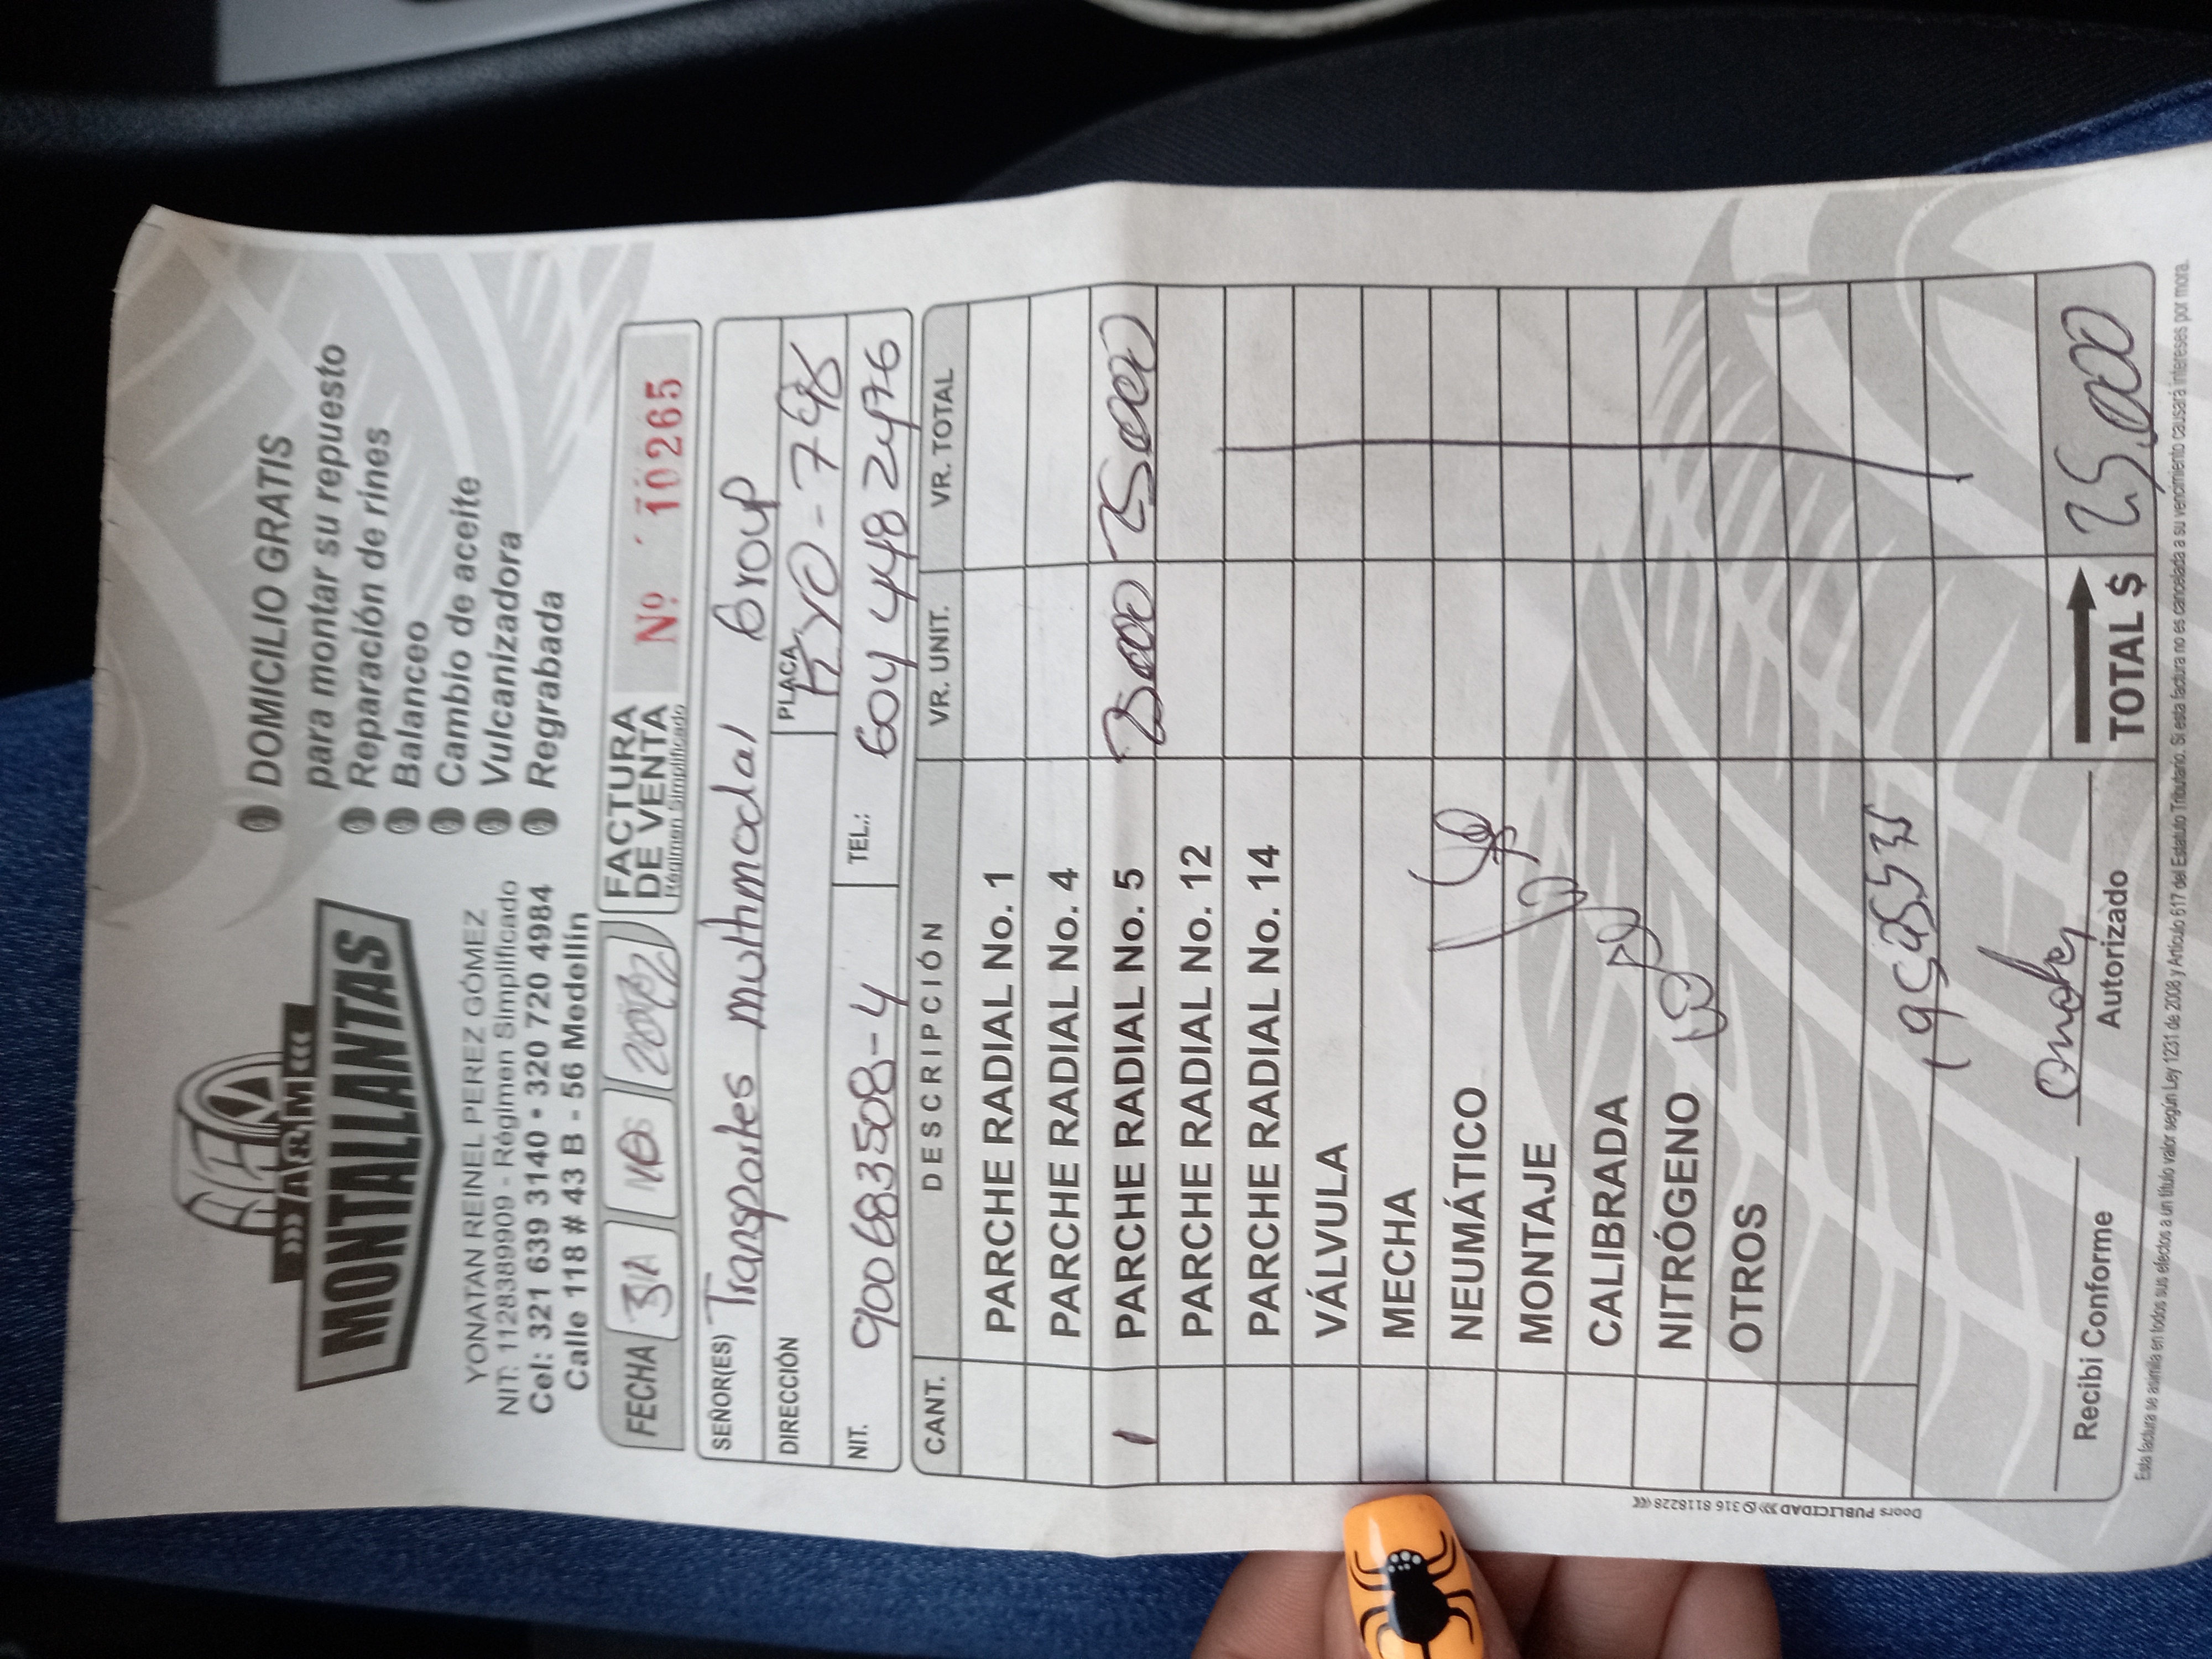 YA&M
MONTALLANTAS
YONATAN REINEL PEREZ GÓMEZ
NIT: 1128389909 - Régimen Simplificado
Cel: 321 639 3140 • 320 720 4984
Calle 118 # 43 B - 56 Medellín
DOMICILIO GRATIS
para montar su repuesto
Reparación de rines
Balanceo
Cambio de aceite
Vulcanizadora
Regrabada
FECHA
FACTURA
DE VENTA
Régimen Simplificado
Nº 10265
SEÑOR(ES) Transportes multimodal Group
DIRECCIÓN PLACA
NIT. 900683508-4 TEL.: 604 448 2476
CANT. DESCRIPCIÓN VR. UNIT. VR. TOTAL
PARCHE RADIAL No. 1
PARCHE RADIAL No. 4
1 PARCHE RADIAL No. 5 25000 25000
PARCHE RADIAL No. 12
PARCHE RADIAL No. 14
VÁLVULA
MECHA
NEUMÁTICO
MONTAJE
CALIBRADA
NITRÓGENO
OTROS
Recibi Conforme Autorizado TOTAL $ 25.000
Esta factura se asimila en todos sus efectos a un título valor según Ley 1231 de 2008 y Artículo 617 del Estatuto Tributario. Si esta factura no es cancelada a su vencimiento causará intereses por mora.
Doors PUBLICIDAD 316 8118228